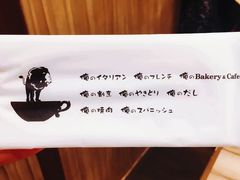 俺のイタリアン 俺のフレンチ 俺のBakery&Cafe
俺の割烹 俺のやきとり 俺のだし
俺の焼肉 俺のスパニッシュ